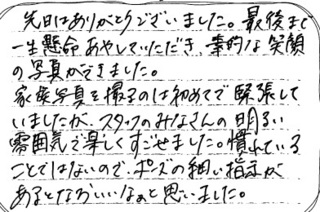 先日はありがとうございました。最後まで
一生懸命あやしていただき、素的な笑顔
の写真ができました。
家族写真を撮るのは初めてで緊張して
いましたが、スタッフのみなさんの明るい
雰囲気で楽しくすごせました。慣れている
ことではないので、ポーズの細い指示が
あるとなおいいなぁと思いました。